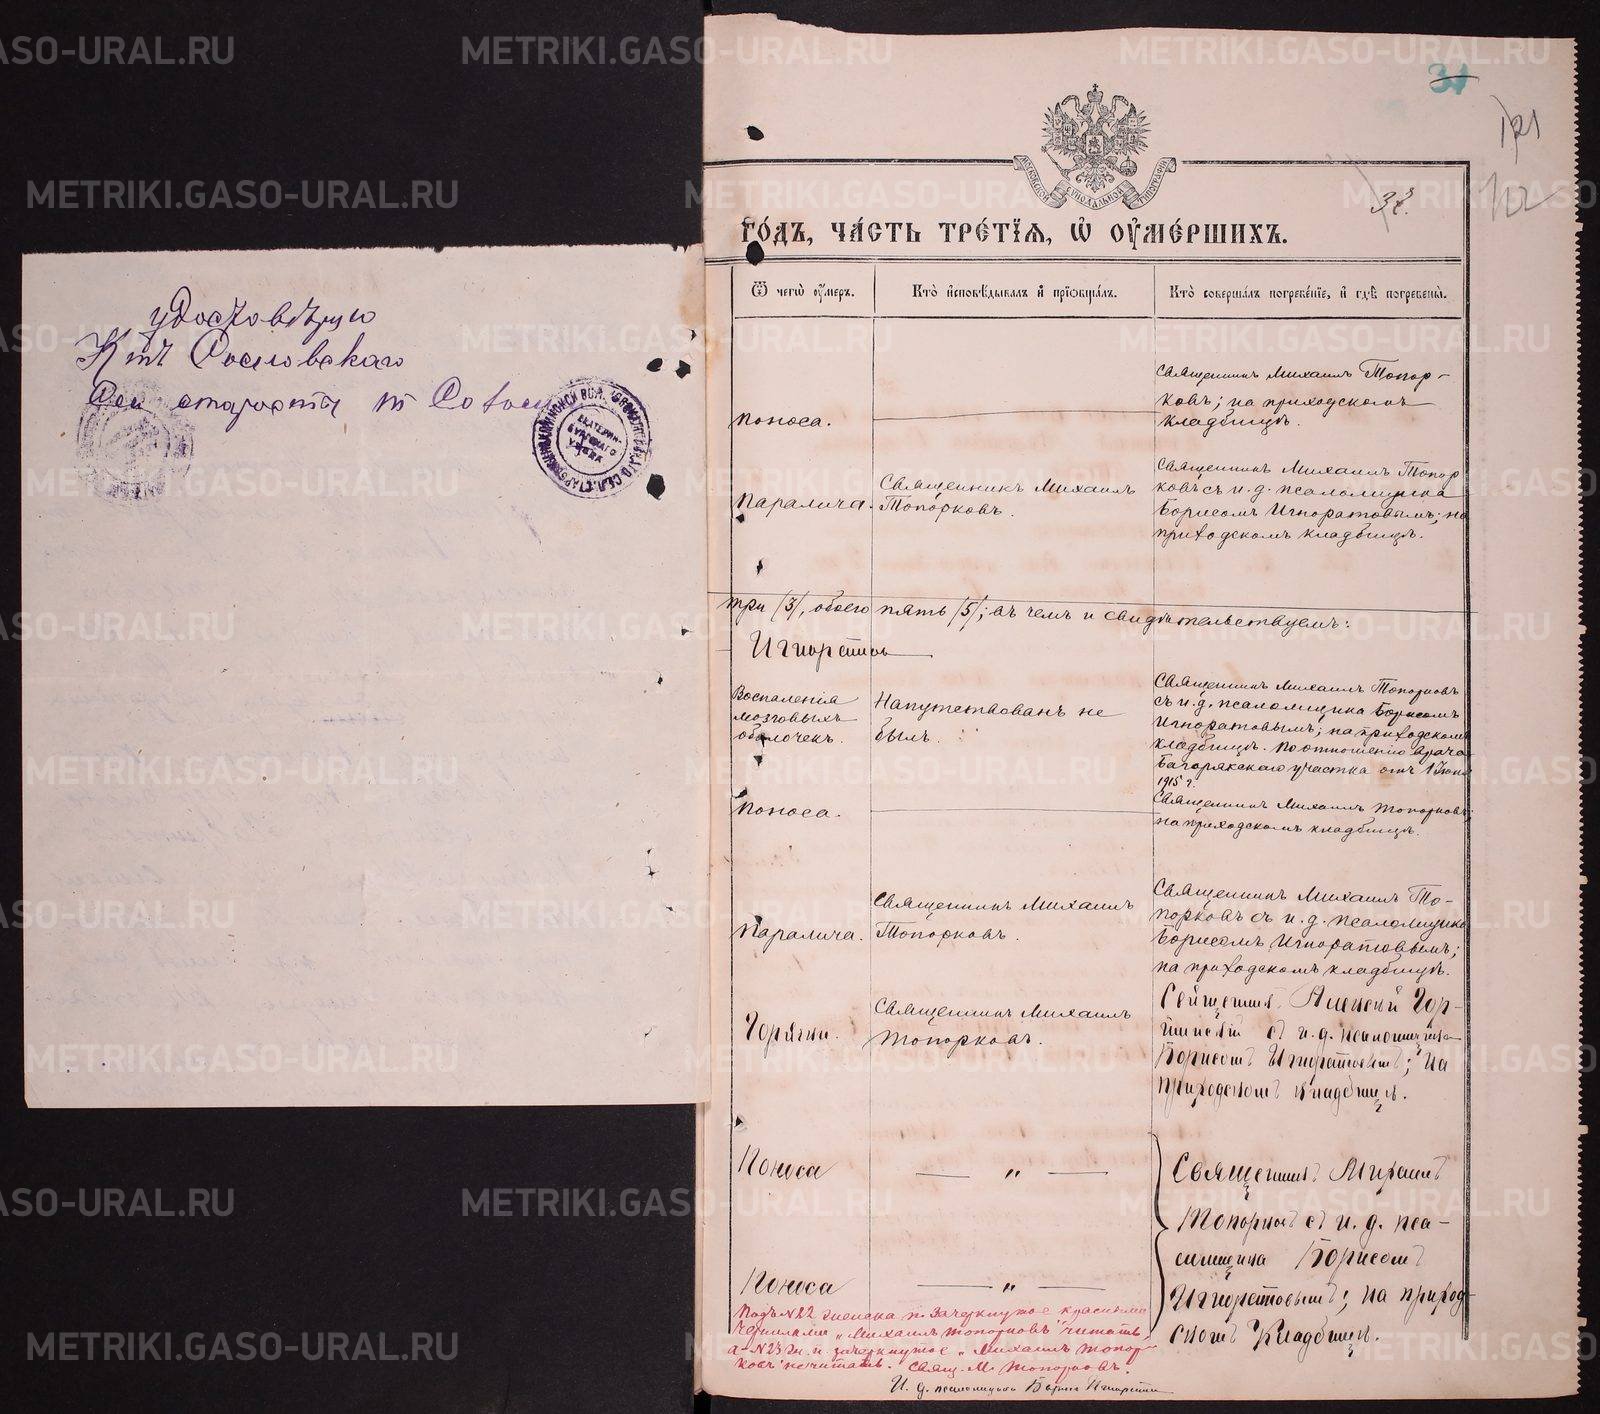 METRIKI.GASO-URAL.RU
31
121
122
32.
МОСКОВСКОЙ СѴНОДАЛЬНОЙ ТИПОГРАФІИ
ГО́ДЪ, ЧА́СТЬ ТРЕ́ТІѦ, Ѡ҆ ОУ҆МЕ́РШИХЪ.
Ѿ чегѡ̀ оу҆́меръ.
Кто̀ и҆сповѣ́дывалъ и҆ прїѡбща́лъ.
Кто̀ соверша́лъ погребе́нїе, и҆ гдѣ̀ погребены̀.
удостовѣряю
Сословскаго
Сел староста
ЕКАТЕРИН-
БУРГСКАГО
УѢЗДА
Поноса.
Священникъ Михаилъ Топор-
ковъ; на приходскомъ
кладбищѣ.
Паралича.
Священникъ Михаилъ
Топорковъ.
Священникъ Михаилъ Топор
ковъ съ и. д. псаломщика
Борисомъ Игноратовымъ; на
приходскомъ кладбищѣ.
три /3/, обоего пять /5/; въ чемъ и свидѣтельствуемъ:
Воспаленія
мозговыхъ
оболочекъ.
Напутствованъ не
былъ.
Священникъ Михаилъ Топорковъ
съ и. д. псаломщика Борисомъ
Игноратовымъ; на приходскомъ
кладбищѣ. По отношенію врача
Багарякскаго участка отъ 1 Іюня
1915 г.
Поноса.
Священникъ Михаилъ Топорковъ;
на приходскомъ кладбищѣ.
Паралича.
Священникъ Михаилъ
Топорковъ.
Священникъ Михаилъ То-
порковъ съ и. д. псаломщика
Борисомъ Игноратовымъ;
на приходскомъ кладбищѣ.
Горячки.
Священникъ Михаилъ
Топорковъ.
Священникъ Алексій
съ и. д. псаломщика
Борисомъ Игноратовымъ; на
приходскомъ кладбищѣ.
Поноса
— „ —
Священникъ Михаилъ
Топорковъ съ и. д. пса-
ломщика Борисомъ
Игноратовымъ; на приход-
скомъ кладбищѣ.
Поноса
— „ —
Подъ №22 зачеркнутое красными
чернилами „Михаилъ Топорковъ" читать,
а №23 зачеркнутое „Михаилъ Топор-
ковъ" не читать. Свящ. М. Топорковъ.
И. д. псаломщика Борисъ